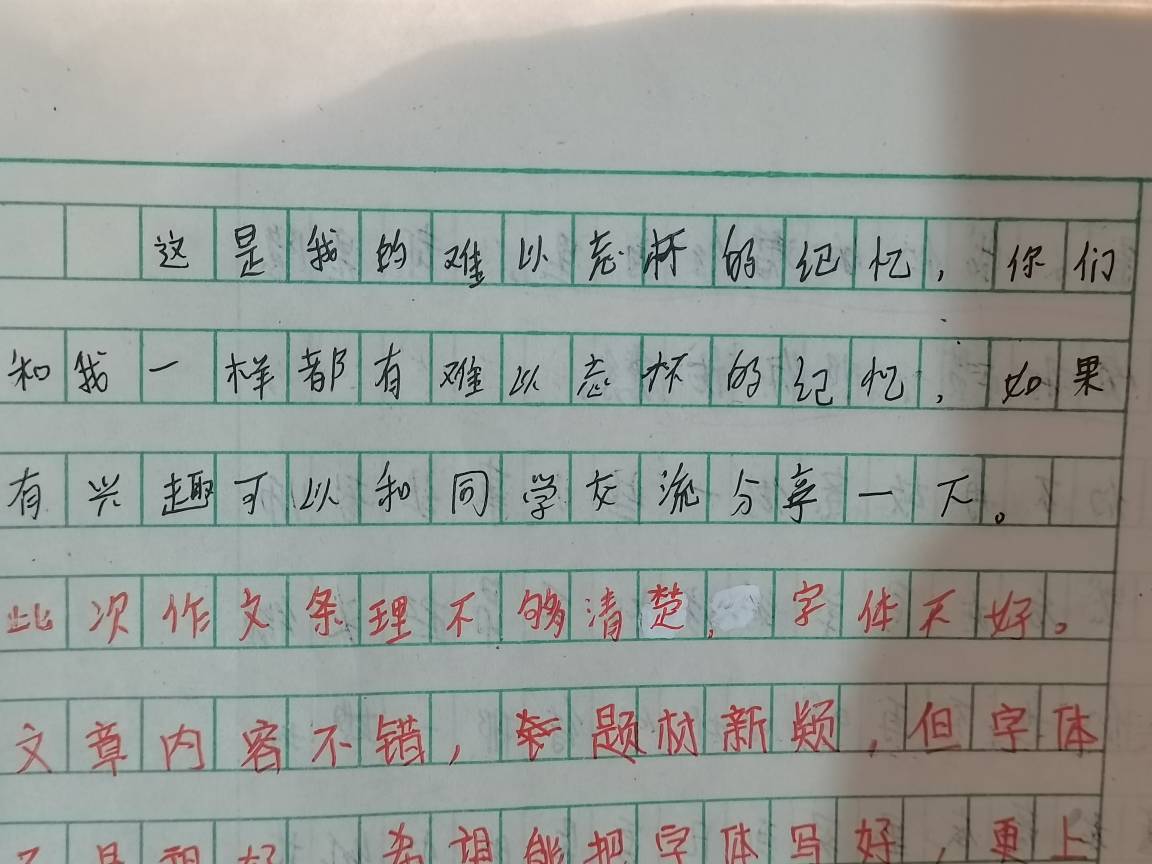 这是我的难以忘怀的纪忆，你们
和我一样都有难以忘怀的纪忆，如果
有兴趣可以和同学交流分享一下。
此次作文条理不够清楚，字体不好。
文章内容不错，题材新颖，但字体
不是很好，希望能把字体写好，更上